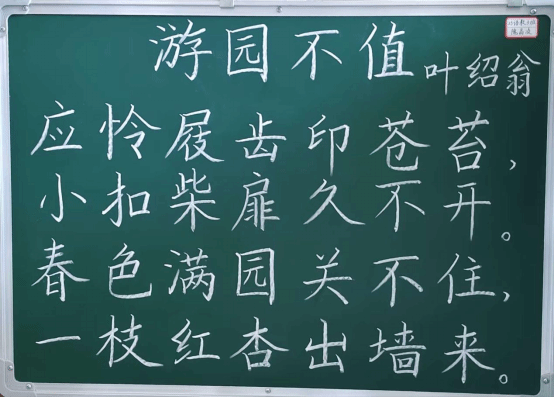 游园不值 叶绍翁
应怜屐齿印苍苔，
小扣柴扉久不开。
春色满园关不住，
一枝红杏出墙来。